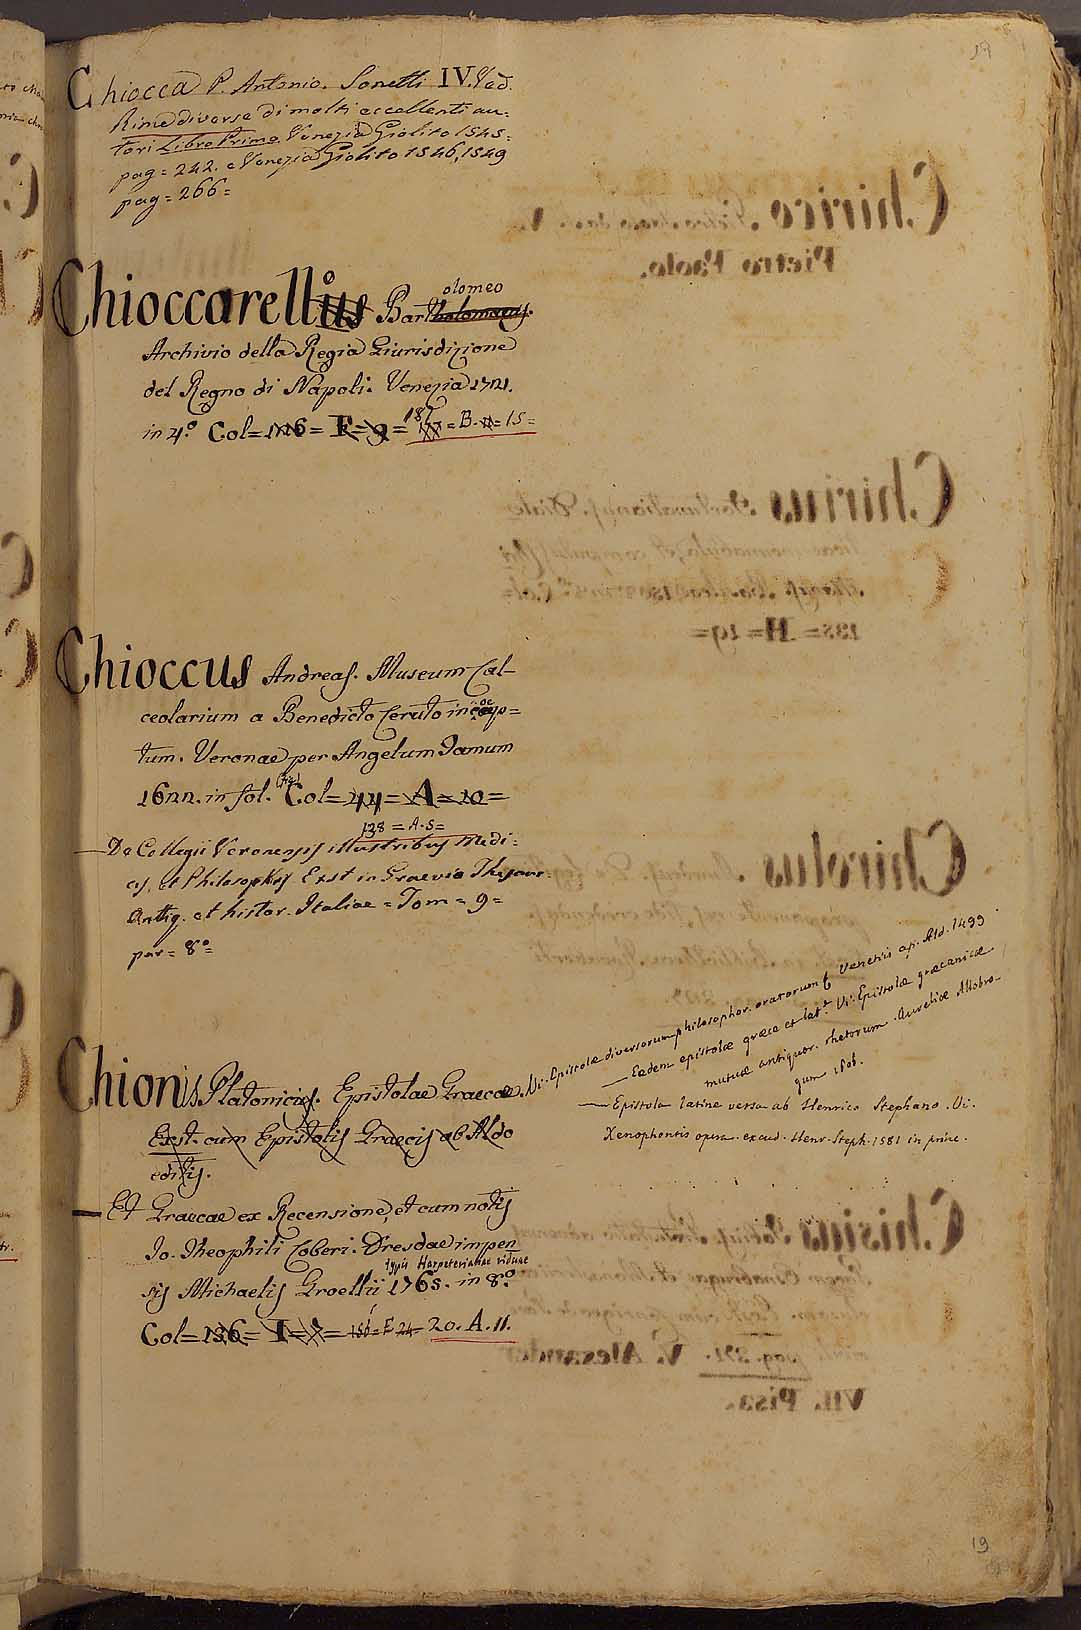 19
Chiocca P. Antonio. Sonetti IV. Ved.
Rime diverse di molti eccellenti au-
tori Libro Primo. Venezia Giolito 1545=
pag= 242. e Venezia Giolito 1546, 1549
pag= 266=
Chioccarellius Bartholomaeus.
o olomeo
Archivio della Regia Giurisdizione
del Regno di Napoli. Venezia 1721.
in 4.º Col= 126= F= 9= 177= B. = 15=
187
Chioccus Andreas. Museum Cal-
ceolarium a Benedicto Ceruto incoep=
tum. Veronae per Angelum Tamum
1622. in fol. (fig.) Col= 44= A= 10=
138= A. 5=
— De Collegii Veronensis illustribus Medi:
cis, et Philosophis Exst in Graevio Thesaur.
Antiq. et histor. Italiae= Tom= 9=
par= 8ª=
Chionis Platonicis. Epistolae Graecae. Vi. Epistolae diversorum philosophor. oratorum Venetiis ap. Ald. 1499
— Eaedem epistolae graece et lat.e Vi. Epistolae graecanicae
mutuae antiquor. rhetorum. Aureliae Allobro-
gum 1606.
— Epistola latine versa ab Henrico Stephano. Vi.
Xenophontis opera. excud. Henr. Steph. 1581 in princ.
Exst. cum Epistolis Graecis ab Aldo
editis.
— Et Graecae ex Recensione, et cum notis
Jo. Theophili Coberi. Dresdae impen
sis Michaelis Groellii 1765. in 8.º
typis Harpeterianae viduae
Col= 136= I= 7= 156= F 24= 20. A. 11.
19